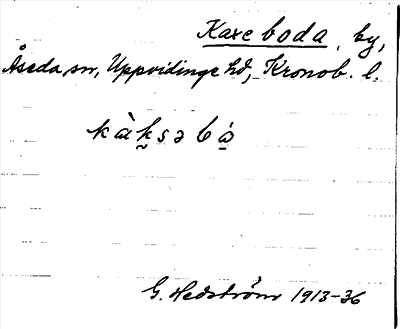 Kaxeboda, by,
Åseda sn, Uppvidinge hd, Kronob. l.
kàk̬səbá̱
G. Hedström 1913-36